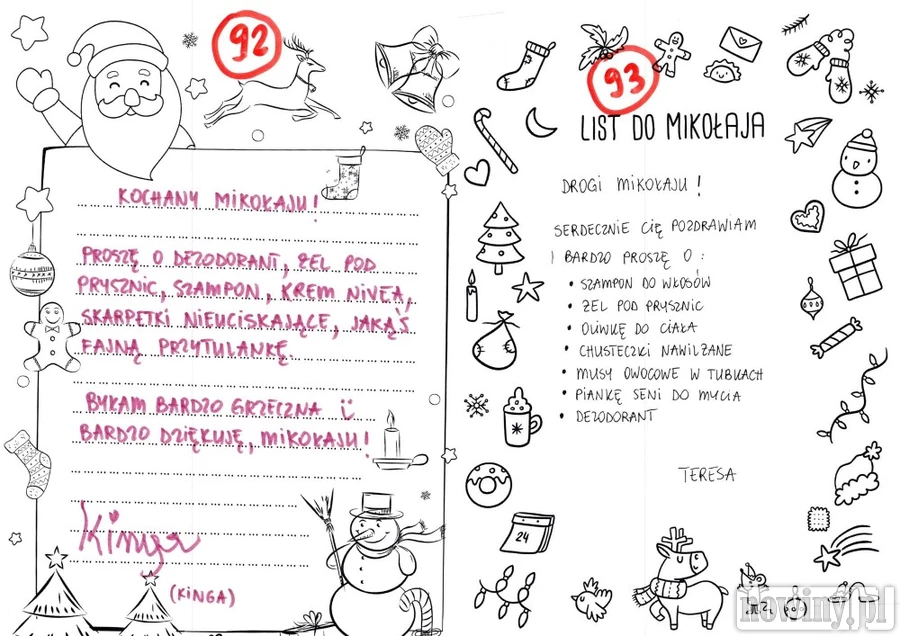 92
KOCHANY MIKOŁAJU!
PROSZĘ O DEZODORANT, ŻEL POD
PRYSZNIC, SZAMPON, KREM NIVEA,
SKARPETKI NIEUCISKAJĄCE, JAKĄŚ
FAJNĄ PRZYTULANKĘ
BYŁAM BARDZO GRZECZNA
BARDZO DZIĘKUJĘ, MIKOŁAJU!
Kinga
(KINGA)
93
LIST DO MIKOŁAJA
DROGI MIKOŁAJU!
SERDECZNIE CIĘ POZDRAWIAM
I BARDZO PROSZĘ O:
• SZAMPON DO WŁOSÓW
• ŻEL POD PRYSZNIC
• OLIWKĘ DO CIAŁA
• CHUSTECZKI NAWILŻANE
• MUSY OWOCOWE W TUBKACH
• PIANKĘ SENI DO MYCIA
• DEZODORANT
TERESA
24
nowiny.pl